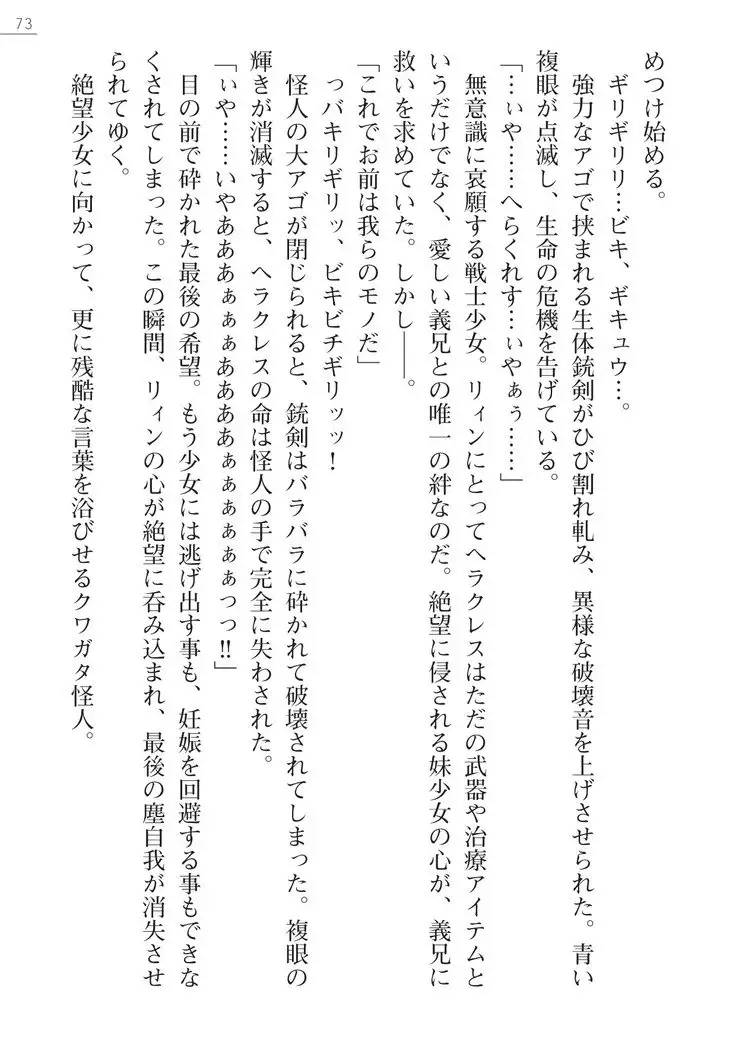 73
めつけ始める。
ギリギリリ…ビキ、ギキュウ…。
強力なアゴで挟まれる生体銃剣がひび割れ軋み、異様な破壊音を上げさせられた。青い
複眼が点滅し、生命の危機を告げている。
「…ぃや……へらくれす…ぃやぁぅ……」
無意識に哀願する戦士少女。リィンにとってヘラクレスはただの武器や治療アイテムと
いうだけでなく、愛しい義兄との唯一の絆なのだ。絶望に侵される妹少女の心が、義兄に
救いを求めていた。しかし――。
「これでお前は我らのモノだ」
っバキリギリッ、ビキビチギリッッ！
怪人の大アゴが閉じられると、銃剣はバラバラに砕かれて破壊されてしまった。複眼の
輝きが消滅すると、ヘラクレスの命は怪人の手で完全に失わされた。
「ぃや……いやあああぁぁぁああああぁぁぁぁぁぁっっ‼」
目の前で砕かれた最後の希望。もう少女には逃げ出す事も、妊娠を回避する事もできな
くされてしまった。この瞬間、リィンの心が絶望に呑み込まれ、最後の塵自我が消失させ
られてゆく。
絶望少女に向かって、更に残酷な言葉を浴びせるクワガタ怪人。